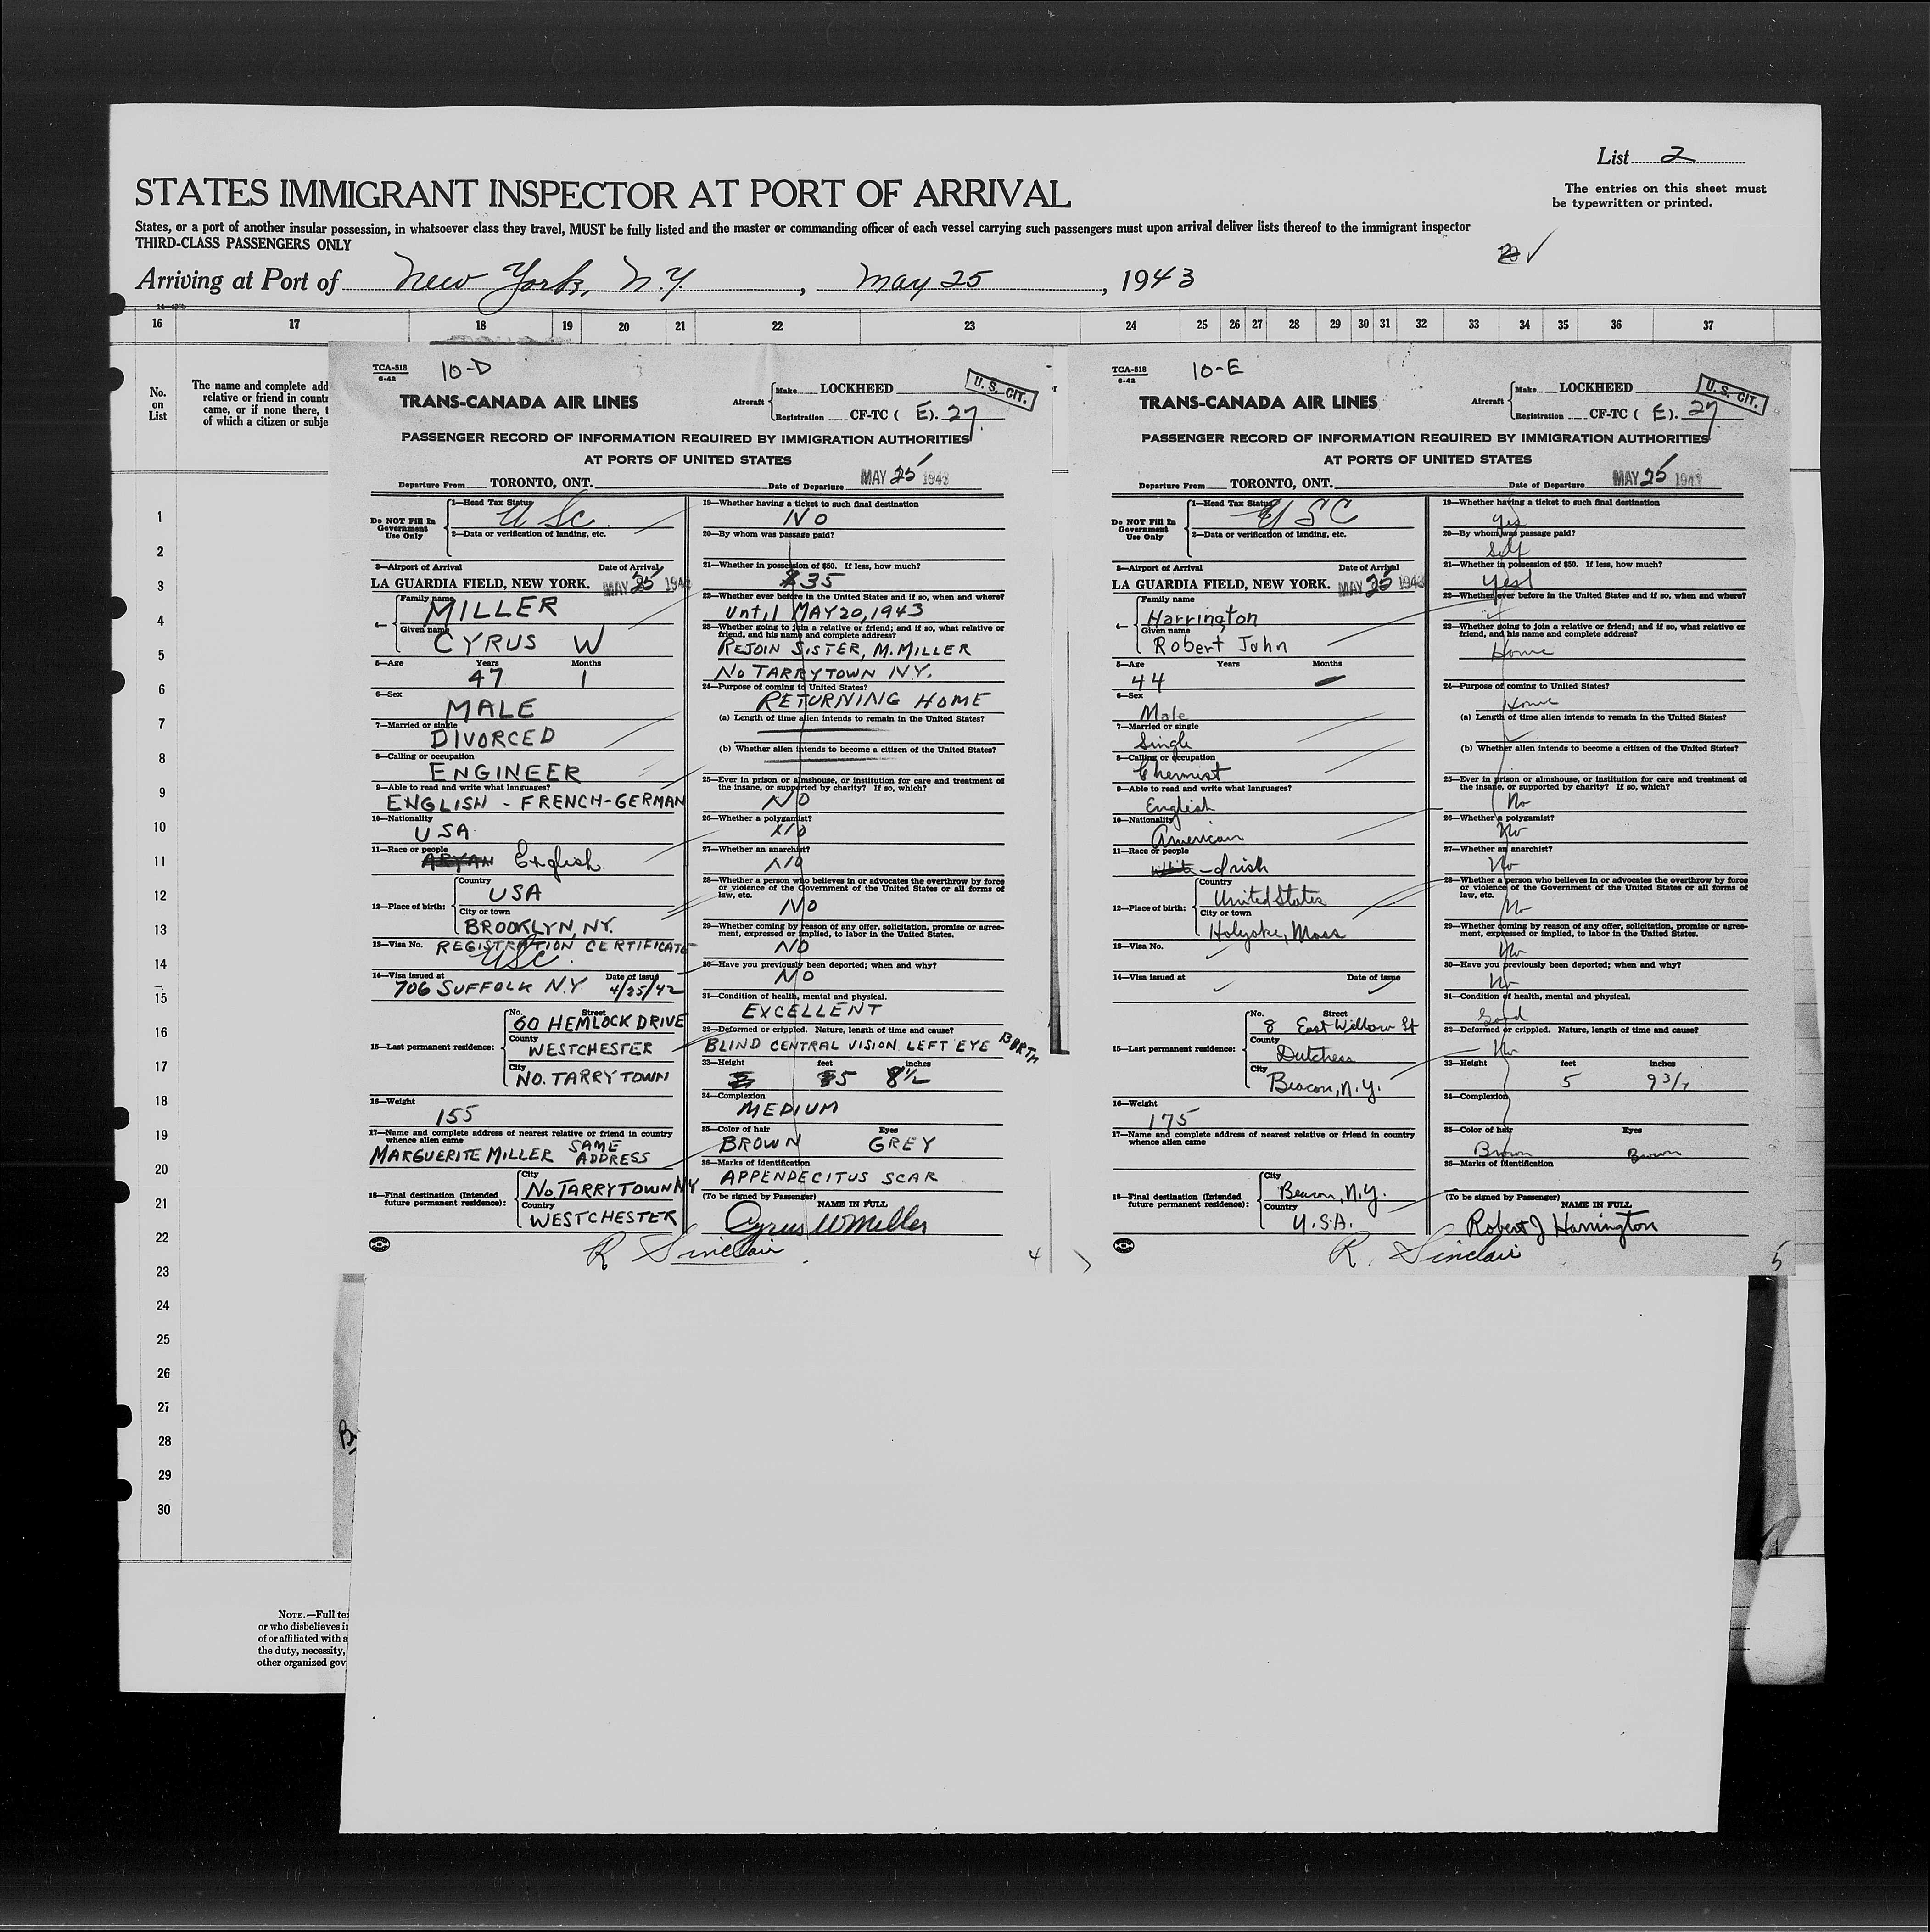 List 2
STATES IMMIGRANT INSPECTOR AT PORT OF ARRIVAL
The entries on this sheet must
be typewritten or printed.
States, or a port of another insular possession, in whatsoever class they travel, MUST be fully listed and the master or commanding officer of each vessel carrying such passengers must upon arrival deliver lists thereof to the immigrant inspector
THIRD-CLASS PASSENGERS ONLY
Arriving at Port of New York, N.Y. , May 25 , 1943
16 17 18 19 20 21 22 23 24 25 26 27 28 29 30 31 32 33 34 35 36 37
No.
on
List
The name and complete add
relative or friend in countr
came, or if none there, t
of which a citizen or subje
1
2
3
4
5
6
7
8
9
10
11
12
13
14
15
16
17
18
19
20
21
22
23
24
25
26
27
28
29
30
NOTE.—Full te
or who disbelieves i
of or affiliated with a
the duty, necessity,
other organized gov
TCA-518
6-42
10-D
TRANS-CANADA AIR LINES
Aircraft
Make LOCKHEED
Registration CF-TC ( E). 27
U. S. CIT.
PASSENGER RECORD OF INFORMATION REQUIRED BY IMMIGRATION AUTHORITIES
AT PORTS OF UNITED STATES
Departure From TORONTO, ONT. Date of Departure MAY 25 1943
Do NOT Fill In
Government
Use Only
1—Head Tax Status
USC
2—Data or verification of landing, etc.
3—Airport of Arrival Date of Arrival
LA GUARDIA FIELD, NEW YORK. MAY 25 194
4—
Family name
MILLER
Given name
CYRUS W
5—Age Years Months
47 1
6—Sex
MALE
7—Married or single
DIVORCED
8—Calling or occupation
ENGINEER
9—Able to read and write what languages?
ENGLISH - FRENCH-GERMAN
10—Nationality
USA
11—Race or people
ARYAN English
12—Place of birth:
Country
USA
City or town
BROOKLYN, NY.
13—Visa No. REGISTRATION CERTIFICATE
USC.
14—Visa issued at Date of issue
706 SUFFOLK N.Y 4/25/42
15—Last permanent residence:
No. Street
60 HEMLOCK DRIVE
County
WESTCHESTER
City
NO. TARRYTOWN
16—Weight
155
17—Name and complete address of nearest relative or friend in country
whence alien came
MARGUERITE MILLER SAME ADDRESS
18—Final destination (Intended
future permanent residence):
City
No. TARRYTOWN NY
Country
WESTCHESTER
19—Whether having a ticket to such final destination
NO
20—By whom was passage paid?
21—Whether in possession of $50. If less, how much?
$35
22—Whether ever before in the United States and if so, when and where?
Until MAY 20, 1943
23—Whether going to join a relative or friend; and if so, what relative or
friend, and his name and complete address?
REJOIN SISTER, M. MILLER
No TARRYTOWN N.Y.
24—Purpose of coming to United States?
RETURNING HOME
(a) Length of time alien intends to remain in the United States?
(b) Whether alien intends to become a citizen of the United States?
25—Ever in prison or almshouse, or institution for care and treatment of
the insane, or supported by charity? If so, which?
NO
26—Whether a polygamist?
NO
27—Whether an anarchist?
NO
28—Whether a person who believes in or advocates the overthrow by force
or violence of the Government of the United States or all forms of
law, etc.
NO
29—Whether coming by reason of any offer, solicitation, promise or agree-
ment, expressed or implied, to labor in the United States.
NO
30—Have you previously been deported; when and why?
NO
31—Condition of health, mental and physical.
EXCELLENT
32—Deformed or crippled. Nature, length of time and cause?
BLIND CENTRAL VISION LEFT EYE BIRTH
33—Height feet inches
5 8½
34—Complexion
MEDIUM
35—Color of hair Eyes
BROWN GREY
36—Marks of identification
APPENDECITUS SCAR
(To be signed by Passenger) NAME IN FULL
Cyrus W Miller
R Sinclair
4
TCA-518
6-42
10-E
TRANS-CANADA AIR LINES
Aircraft
Make LOCKHEED
Registration CF-TC ( E). 27
U. S. CIT.
PASSENGER RECORD OF INFORMATION REQUIRED BY IMMIGRATION AUTHORITIES
AT PORTS OF UNITED STATES
Departure From TORONTO, ONT. Date of Departure MAY 25 194
Do NOT Fill In
Government
Use Only
1—Head Tax Status
USC
2—Data or verification of landing, etc.
3—Airport of Arrival Date of Arrival
LA GUARDIA FIELD, NEW YORK. MAY 25 1943
4—
Family name
Harrington
Given name
Robert John
5—Age Years Months
44 —
6—Sex
Male
7—Married or single
Single
8—Calling or occupation
Chemist
9—Able to read and write what languages?
English
10—Nationality
American
11—Race or people
White - Irish
12—Place of birth:
Country
United States
City or town
Holyoke, Mass
13—Visa No.
14—Visa issued at Date of issue
15—Last permanent residence:
No. Street
8 East Willow St
County
Dutchess
City
Beacon, N.Y.
16—Weight
175
17—Name and complete address of nearest relative or friend in country
whence alien came
18—Final destination (Intended
future permanent residence):
City
Beacon, N.Y.
Country
U.S.A.
19—Whether having a ticket to such final destination
Yes
20—By whom was passage paid?
Self
21—Whether in possession of $50. If less, how much?
Yes
22—Whether ever before in the United States and if so, when and where?
23—Whether going to join a relative or friend; and if so, what relative or
friend, and his name and complete address?
Home
24—Purpose of coming to United States?
Home
(a) Length of time alien intends to remain in the United States?
(b) Whether alien intends to become a citizen of the United States?
25—Ever in prison or almshouse, or institution for care and treatment of
the insane, or supported by charity? If so, which?
No
26—Whether a polygamist?
No
27—Whether an anarchist?
No
28—Whether a person who believes in or advocates the overthrow by force
or violence of the Government of the United States or all forms of
law, etc.
No
29—Whether coming by reason of any offer, solicitation, promise or agree-
ment, expressed or implied, to labor in the United States.
No
30—Have you previously been deported; when and why?
No
31—Condition of health, mental and physical.
Good
32—Deformed or crippled. Nature, length of time and cause?
No
33—Height feet inches
5 9
34—Complexion
35—Color of hair Eyes
Brown Brown
36—Marks of identification
(To be signed by Passenger) NAME IN FULL
Robert J Harrington
R. Sinclair
5